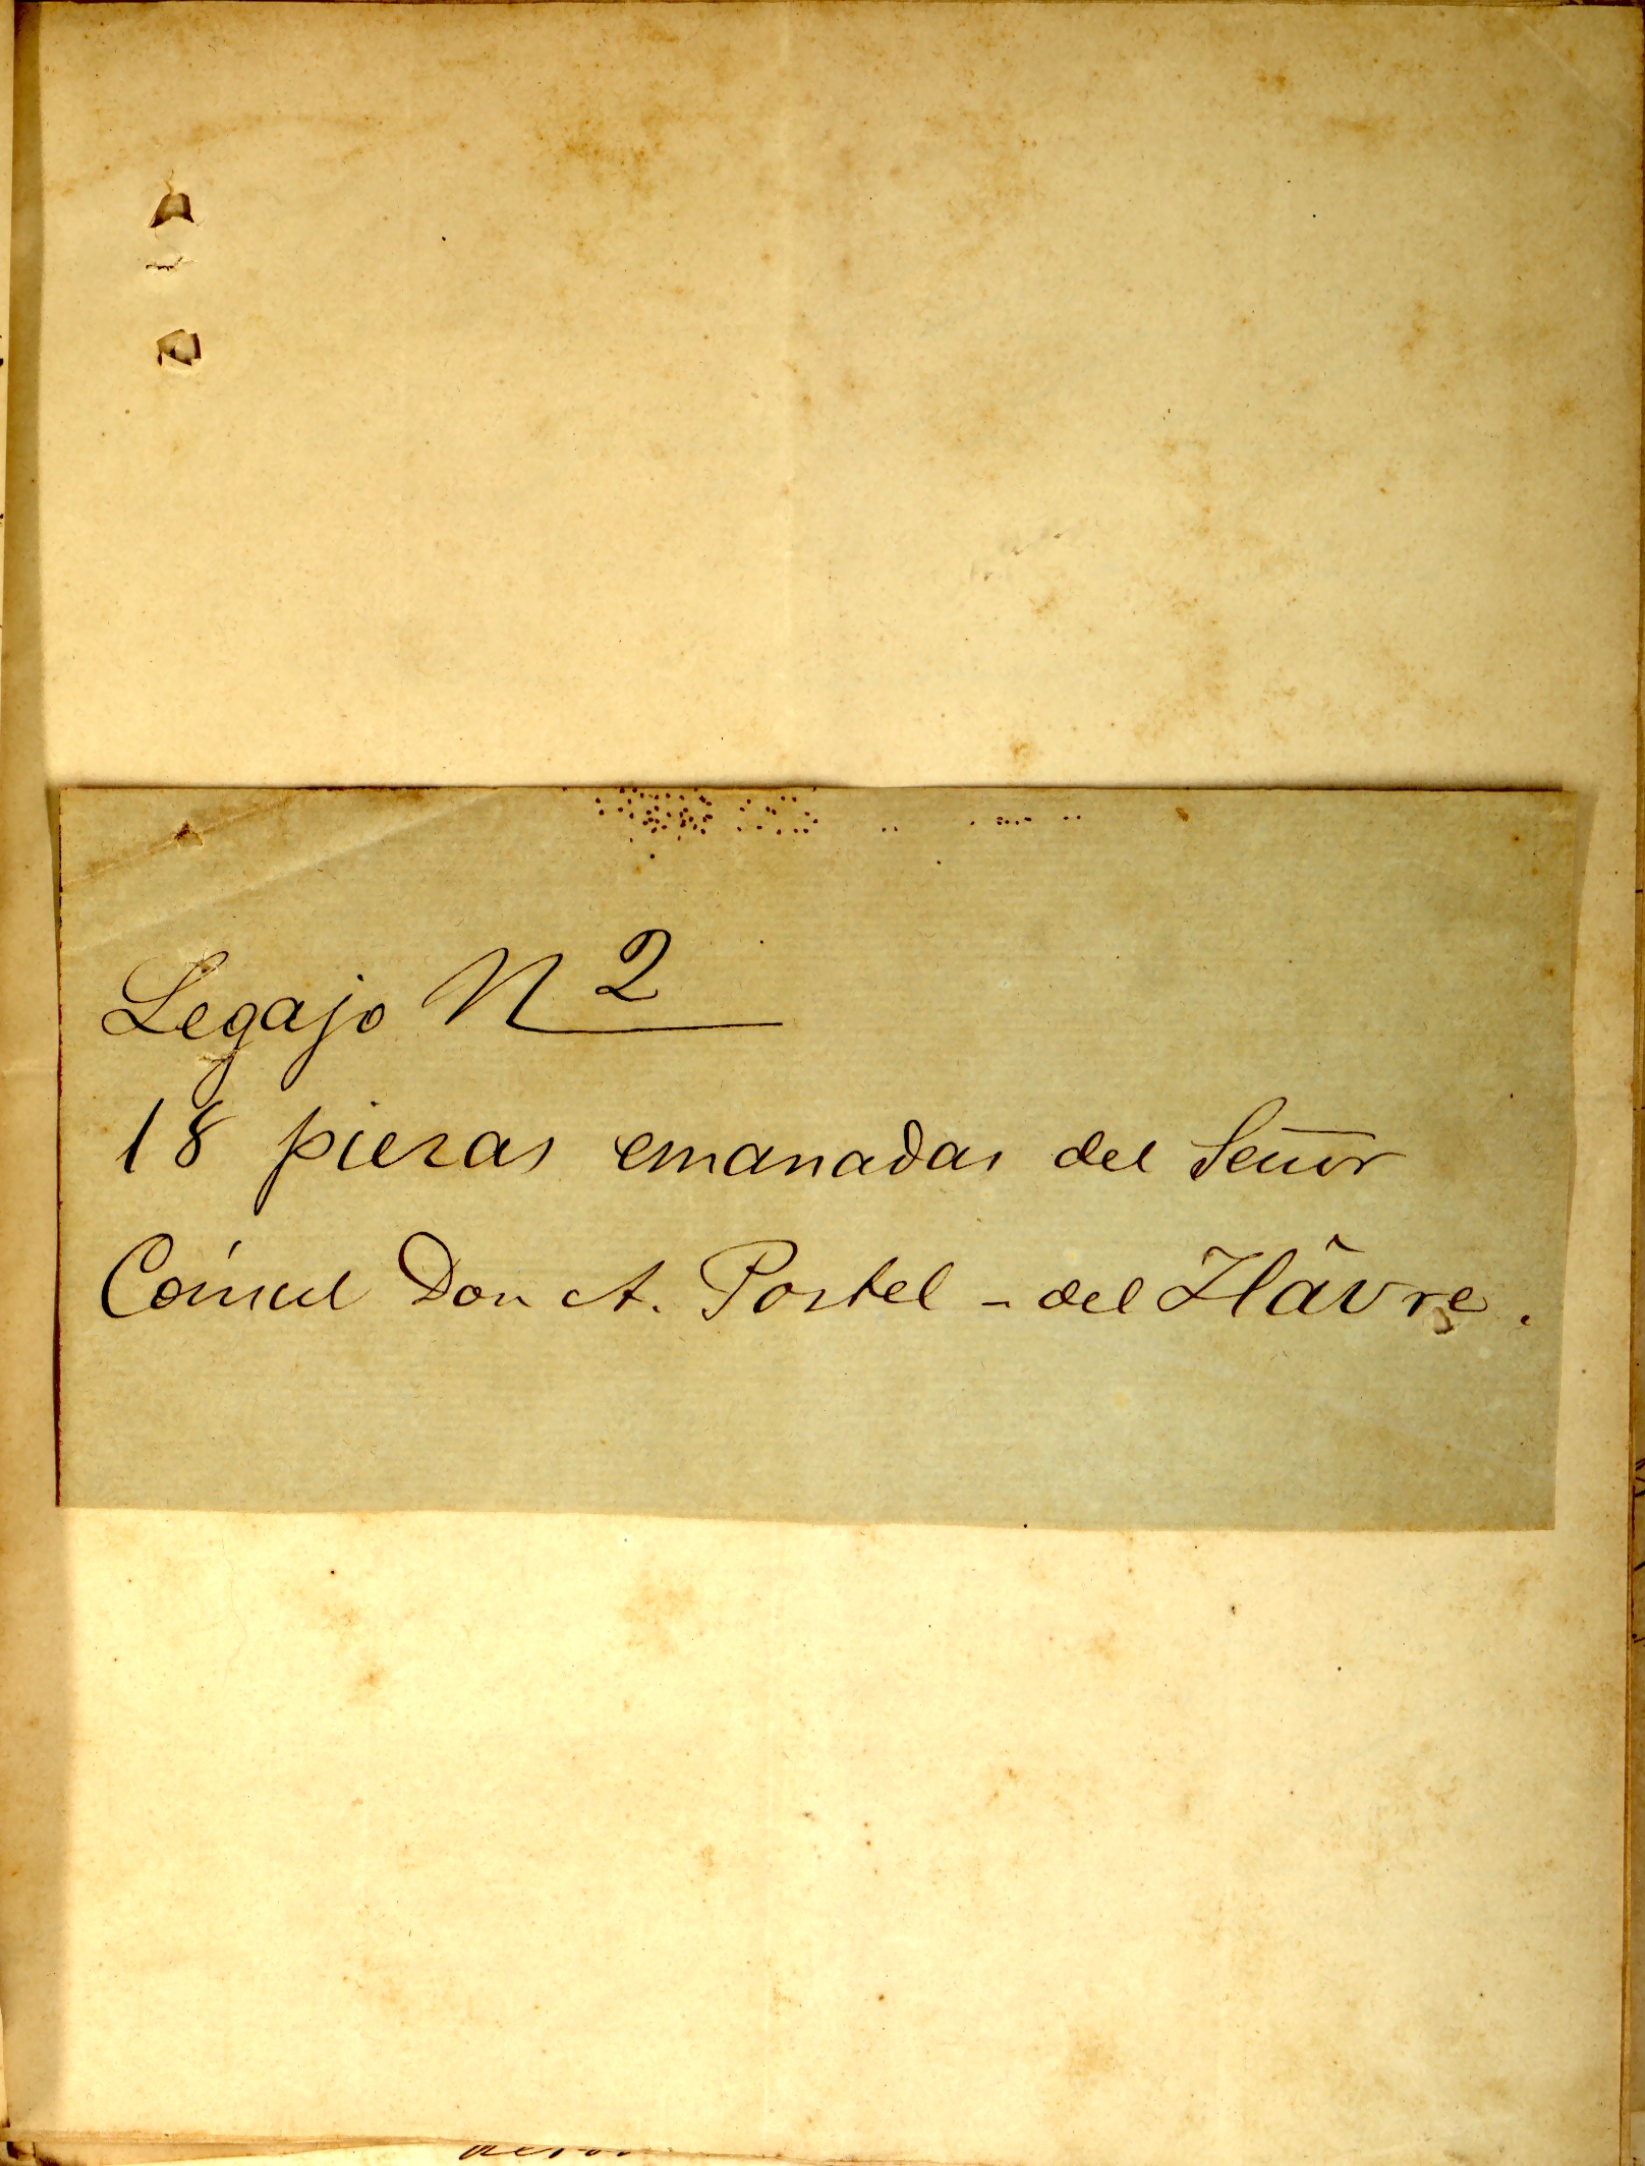 Legajo N 2
18 piezas emanadas del Señor
Cónsul Don A. Postel - del Hâvre.